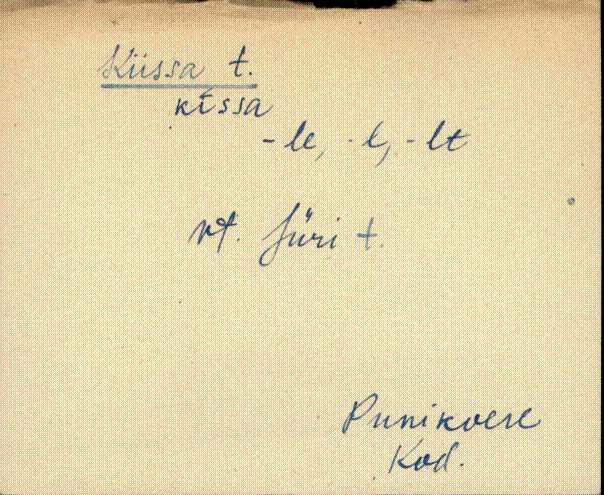 Küssa t.
kissa
-le, -l, -lt
vt. Jüri t.
Punikvere
Kod.